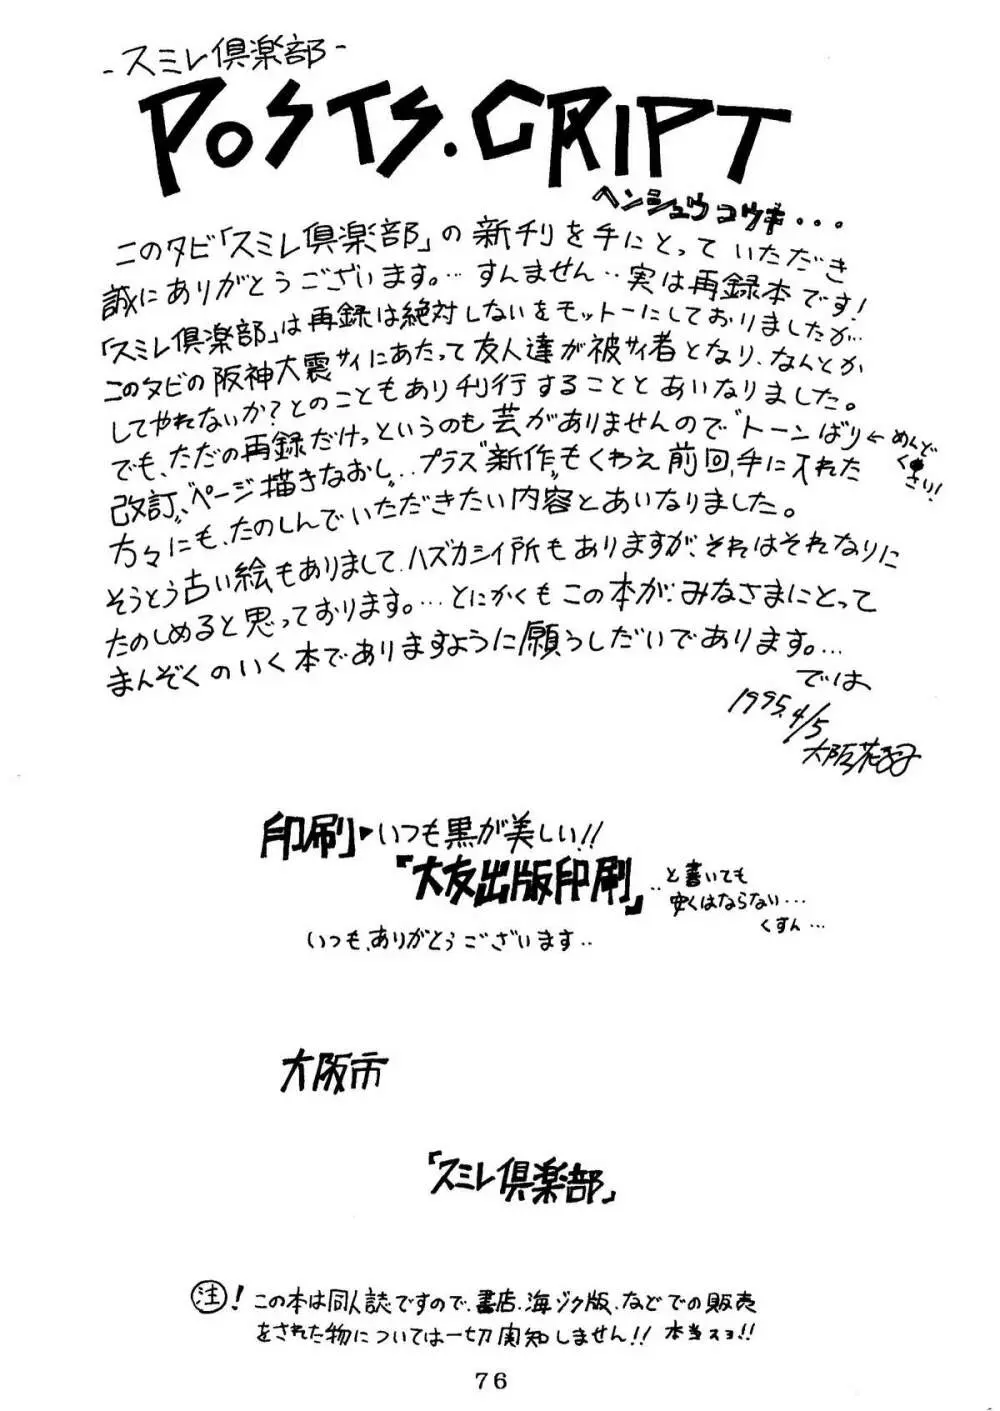 -スミレ倶楽部-
POSTS.CRIPT
ヘンシュウコウキ...
このタビ「スミレ倶楽部」の新刊を手にとっていただき
誠にありがとうございます。…すんません‥実は再録本です!
「スミレ倶楽部」は再録は絶対しないをモットーにしておりましたが…
このタビの阪神大震サイにあたって友人達が被サイ者となり、なんとか
してやれないか?とのこともあり刊行することとあいなりました。
でも、ただの再録だけっというのも芸がありませんので〝トーンばり←めんどくさい!
改訂〟、〝ページ描きなおし〟‥プラス〝新作〟もくわえ前回、手に入れた
方々にも、たのしんでいただきたい内容とあいなりました。
そうとう古い絵もありまして、ハズカシイ所もありますが、それはそれなりに
たのしめると思っております。…とにかくもこの本が、みなさまにとって
まんぞくのいく本でありますように願うしだいであります。…
では、
1995.4/5
大阪花子
印刷▶いつも黒が美しい!!
『大友出版印刷』‥と書いても
安くはならない…
くすん…
いつも、ありがとうございます‥
大阪市
「スミレ倶楽部」
注!この本は同人誌ですので、書店、海ゾク版、などでの販売
をされた物については一切関知しません!!本当スョ!!
76